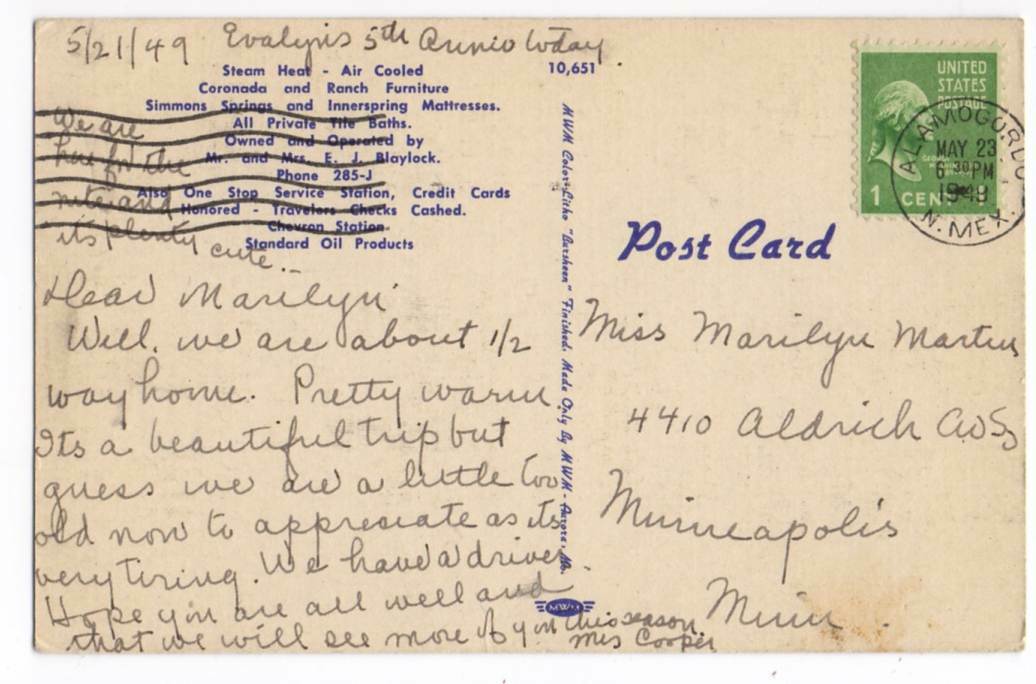 5/21/49 Evalyn's 5th Anniv today.
Steam Heat - Air Cooled
Coronada and Ranch Furniture
Simmons Springs and Innerspring Mattresses.
All Private Tile Baths.
Owned and Operated by
Mr. and Mrs. E. J. Blaylock.
Phone 285-J
Also One Stop Service Station, Credit Cards
Honored - Travelers Checks Cashed.
Chevron Station
Standard Oil Products
We are
here for the
nite and
its plenty
cute...
Dear Marilyn
Well, we are about 1/2
way home. Pretty warm
Its a beautiful trip but
guess we are a little too
old now to appreciate as its
very tiring. We have a driver
Hope you are all well and
that we will see more of you this season.
Mrs Cooper
10,651
MWM Color-Litho "Darsheen" Finished. Made Only By MWM - Aurora, Mo.
MWM
UNITED
STATES
POSTAGE
1 CENT
ALAMOGORDO
MAY 23
6 30 PM
1949
N. MEX.
Post Card
Miss Marilyn Martin
4410 Aldrich Av So
Minneapolis
Minn.